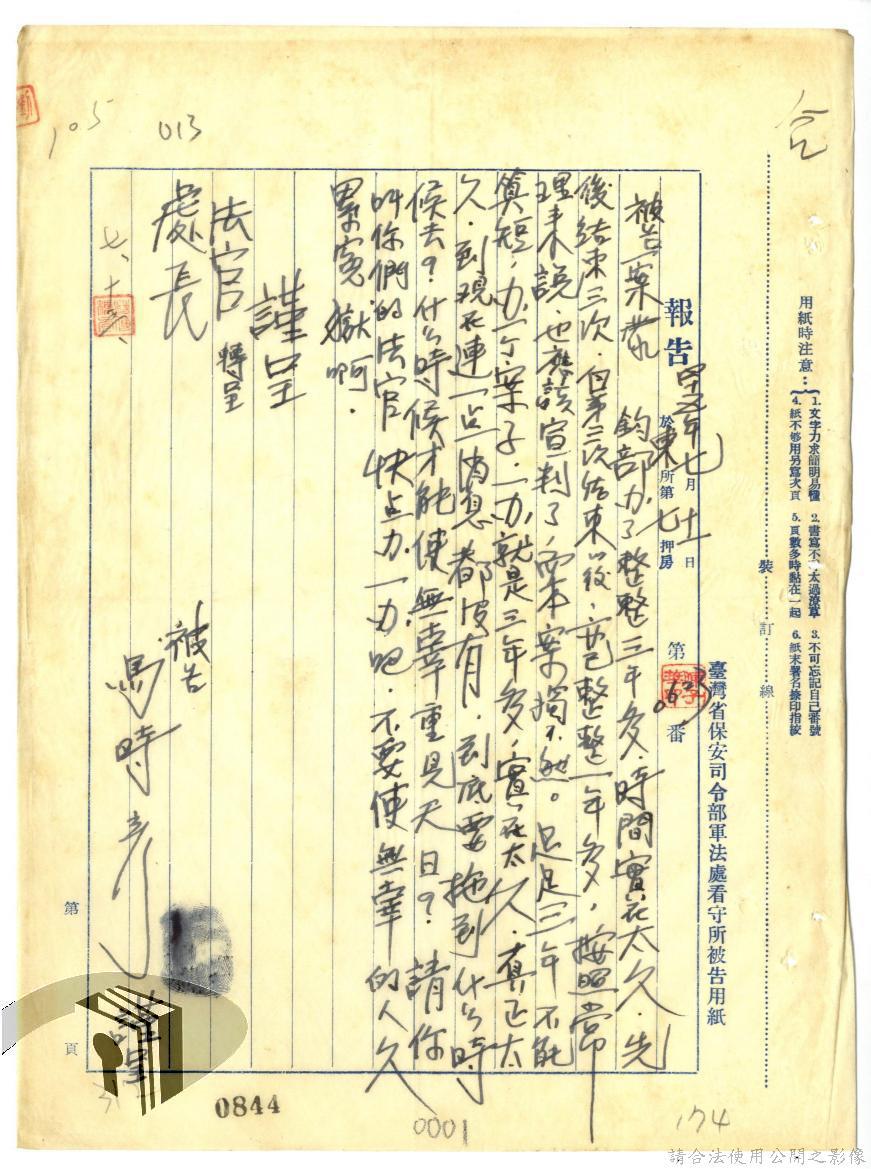 105
013
用紙時注意：
1. 文字力求簡明易懂 2. 書寫不可太過潦草 3. 不可忘記自己番號
4. 紙不够用另寫次頁 5. 頁數多時黏在一起 6. 紙末署名捺印指紋
裝 訂 線
臺灣省保安司令部軍法處看守所被告用紙
報告 四十五年七月十一日 於東所第七押房 第 番
被告一案蒙 鈞部办了整整三年多，時間實在太久．先
後結束三次．但第三次結束以後，亦已整整一年多，按照常
理來說，也應該宣判了，而本案獨不然。足足三年不能
算短，办一个案子．一办就是三年多，實在太久．真正太
久．到現在連一点消息都沒有．到底要拖到什么時
候去？什么時候才能使無辜重見天日？請你
叫你們的法官快点办一办吧．不要使無辜的人久
累寃獄啊．
謹呈
法官 轉呈
處長
被告
馬時彥
謹呈
七、十
第 頁
0844
0001
174
請合法使用公開之影像